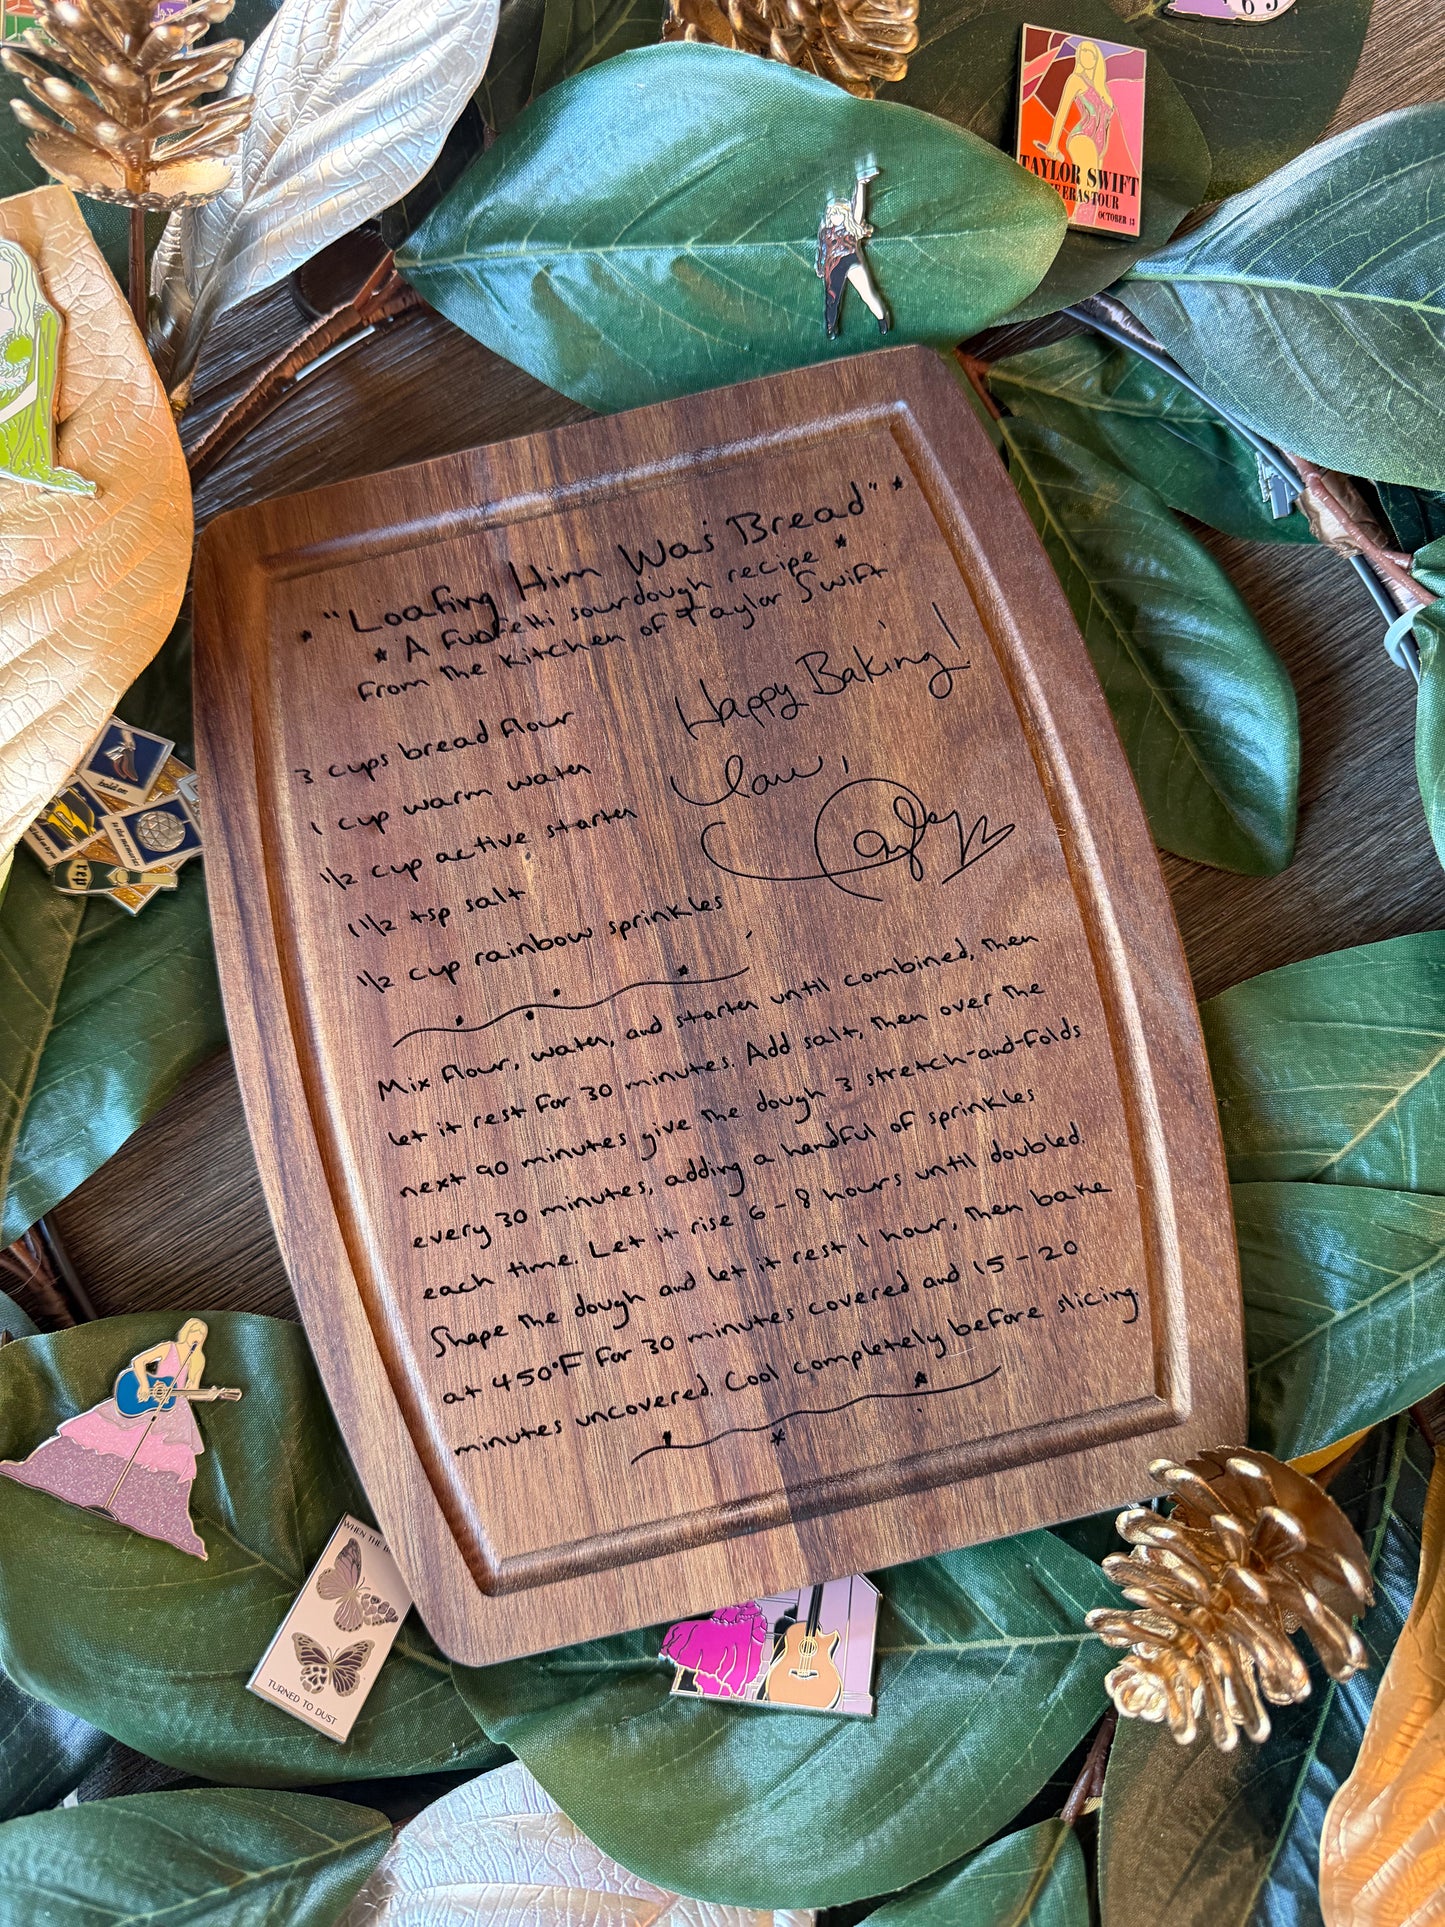 TAYLOR SWIFT
ERAS TOUR
OCTOBER 13
"Loafing Him Was Bread"
A funfetti sourdough recipe
from the kitchen of Taylor Swift
Happy Baking!
Love,
Taylor
3 cups bread flour
1 cup warm water
1/2 cup active starter
1 1/2 tsp salt
1/2 cup rainbow sprinkles
Mix flour, water, and starter until combined, then
let it rest for 30 minutes. Add salt, then over the
next 90 minutes give the dough 3 stretch-and-folds
every 30 minutes, adding a handful of sprinkles
each time. Let it rise 6-8 hours until doubled.
Shape the dough and let it rest 1 hour, then bake
at 450°F for 30 minutes covered and 15-20
minutes uncovered. Cool completely before slicing.
hold on
to the memories
WHEN THE
TURNED TO DUST